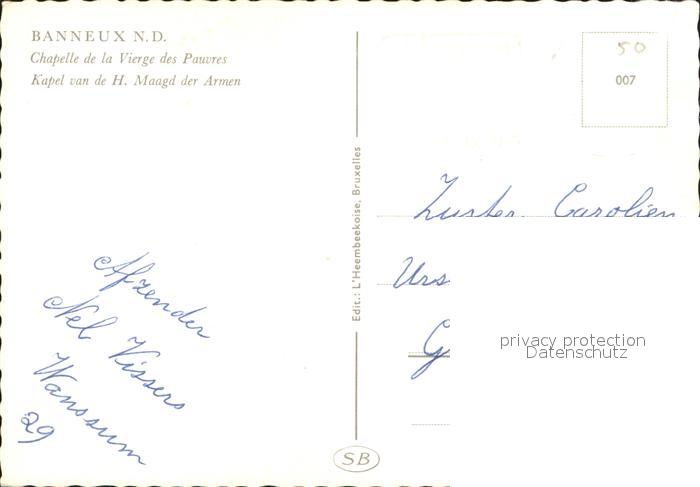 BANNEUX N.D.
Chapelle de la Vierge des Pauvres
Kapel van de H. Maagd der Armen
50
007
Edit.: L'Heembeekoise, Bruxelles
Zuster Carolien
Urs
G
privacy protection
Datenschutz
Afzender
Nel Vissers
Wanssum
29
SB